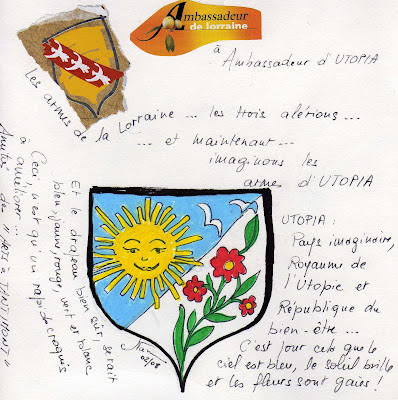 Ambassadeur
de lorraine
à Ambassadeur d'UTOPIA
Les armes de la Lorraine ... les trois alérions ...
... et maintenant ...
imaginons les
armes d'UTOPIA
UTOPIA :
Pays imaginaire,
Royaume de
l'Utopie et
République du
bien-être ...
C'est pour cela que le
ciel est bleu, le soleil brille
et les fleurs sont gaies !
Et le drapeau bien sûr, serait
bleu, jaune, rouge, vert et blanc
Ceci n'est qu'un rapide croquis
à améliorer ...
Amitiés des
02/08